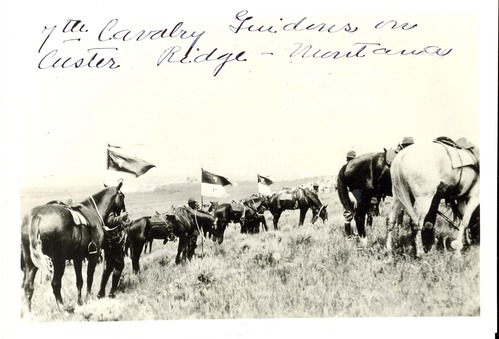 7th Cavalry Guidons on
Custer Ridge - Montana